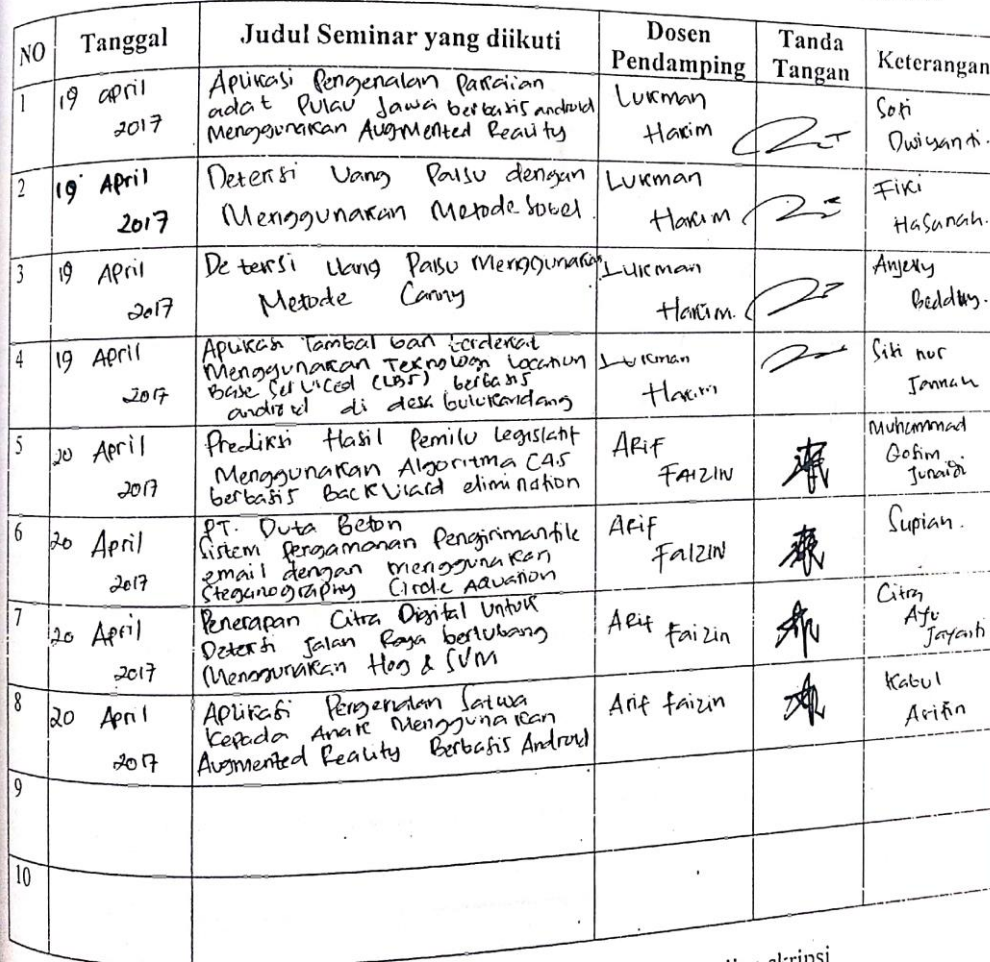 NO Tanggal Judul Seminar yang diikuti Dosen Pendamping Tanda Tangan Keterangan
1 19 april 2017
Aplikasi Pengenalan Pakaian
adat Pulau Jawa berbasis android
Menggunakan Augmented Reality
Lukman Hakim
Sofi Dwiyanti.
2 19 April 2017
Deteksi Uang Palsu dengan
Menggunakan Metode Sobel.
Lukman Hakim
Fiki Hasanah.
3 19 April 2017
Deteksi Uang Palsu Menggunakan
Metode Canny
Lukman Hakim.
4 19 April 2017
Aplikasi Tambal ban terdekat
Menggunakan Teknologi Location
Base Serviced (LBS) berbasis
android di desa bulukandang
Lukman Hakim
Siti nur Jannah
5 20 April 2017
Prediksi Hasil Pemilu legislatif
Menggunakan Algoritma C45
berbasis Backward elimination
ARIF FAIZIN
Muhammad Qofim Junaidi
6 20 April 2017
PT. Duta Beton
Sistem Pengamanan Pengiriman file
email dengan menggunakan
Steganography Circle
Arif FaIZIN
Supian.
7 20 April 2017
Penerapan Citra Digital Untuk
Deteksi Jalan Raya berlubang
Menggunakan Hog & SVM
ARif Faizin
Citra Ayu Jayanti
8 20 April 2017
Aplikasi Pengenalan Satwa
Kepada Anak Menggunakan
Augmented Reality Berbasis Android
Arif faizin
Kabul Arifin
9
10
skripsi